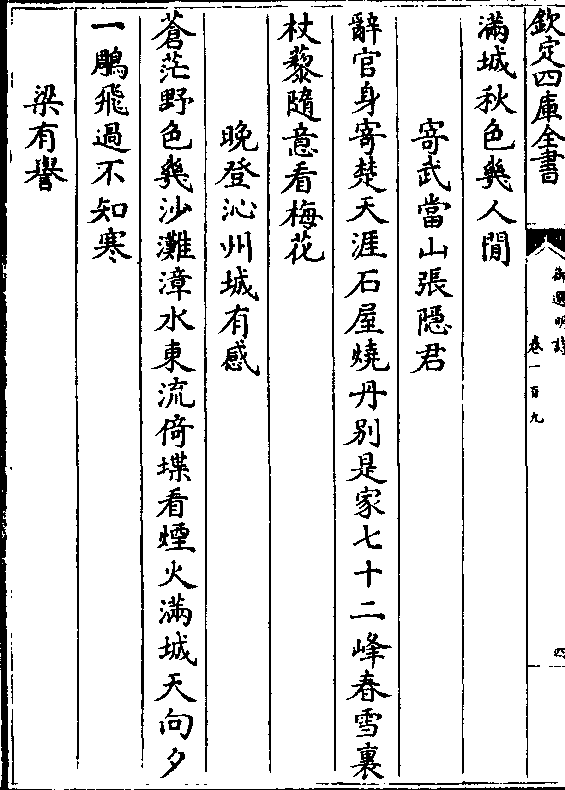 欽定四庫全書
御選明詩
卷一百九
四
滿城秋色幾人閒
寄武當山張隱君
辭官身寄楚天涯石屋燒丹別是家七十二峰春雪裏
杖藜隨意看梅花
晚登沁州城有感
蒼茫野色幾沙灘漳水東流倚堞看煙火滿城天向夕
一鵰飛過不知寒
梁有譽